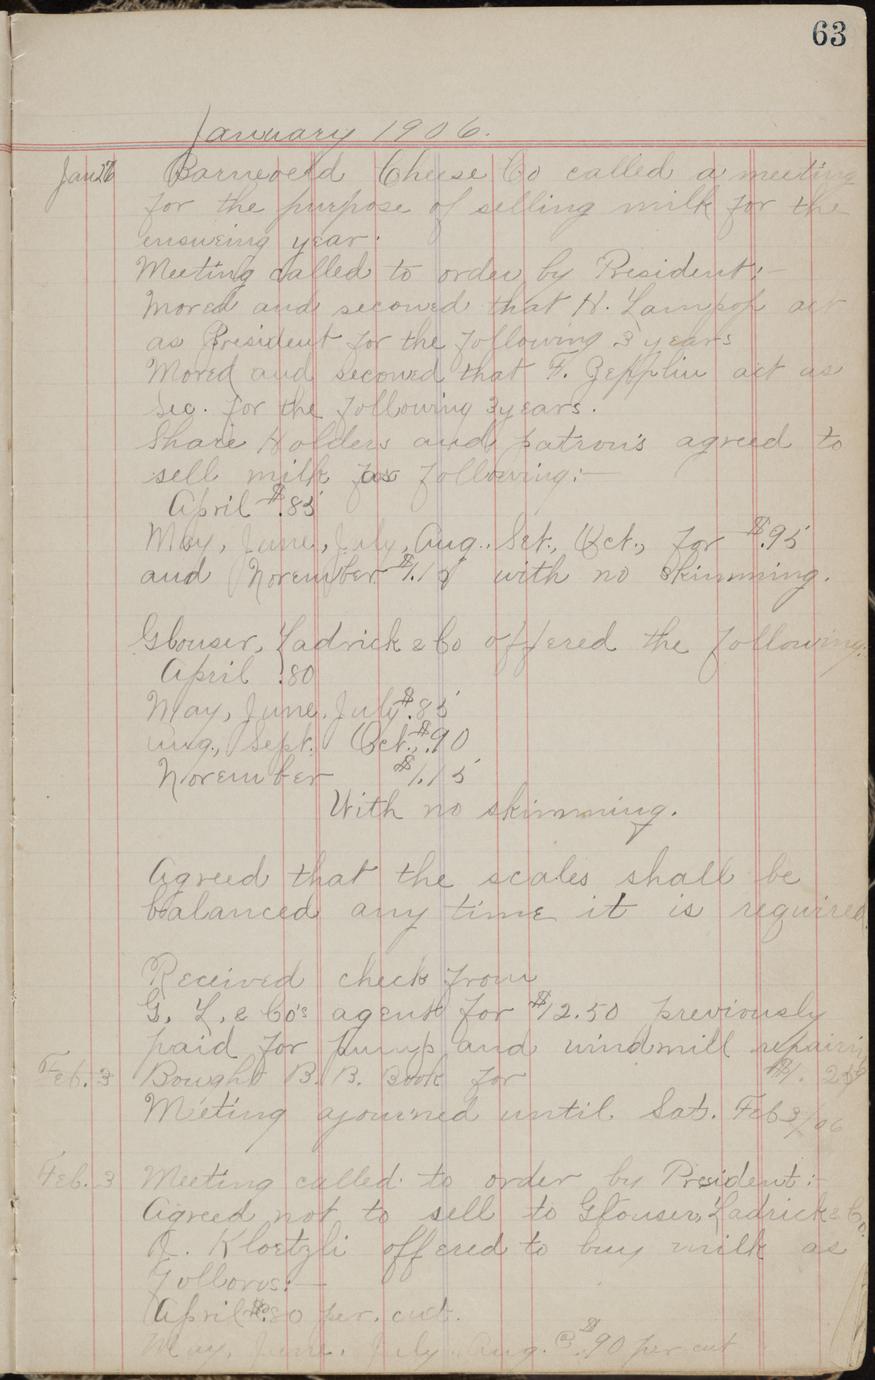 63
January 1906.
Jan 26 Barneveld Cheese Co called a meeting
for the purpose of selling milk for the
ensueing year.
Meeting called to order by President:-
Moved and seconed that H. Lampop act
as President for the following 3 years
Moved and seconed that F. Zepplin act as
Sec. for the following 3 years.
Share Holders and patron's agreed to
sell milk as following:-
April $.85
May, June, July, Aug. Set., Oct., for $.95
and November $1.15 with no skimming.
Glouser, Ladrick & Co offered the following:
April .80
May, June, July $.85
Aug., Sept. Oct., $.90
November $1.15
With no skimming.
Agreed that the scales shall be
balanced any time it is required.
Received check from
G, L, & Co's agent for $12.50 previously
paid for pump and windmill repairing
Feb. 3 Bought B. B. Book for $1.25
Meeting ajourned until Sat. Feb 3/06
Feb. 3 Meeting called to order by President:-
Agreed not to sell to Glouser, Ladrick & Co.
Kloetzli offered to buy milk as
Follows:-
April $.80 per. cwt.
May, June, July, Aug. @ $.90 per cwt